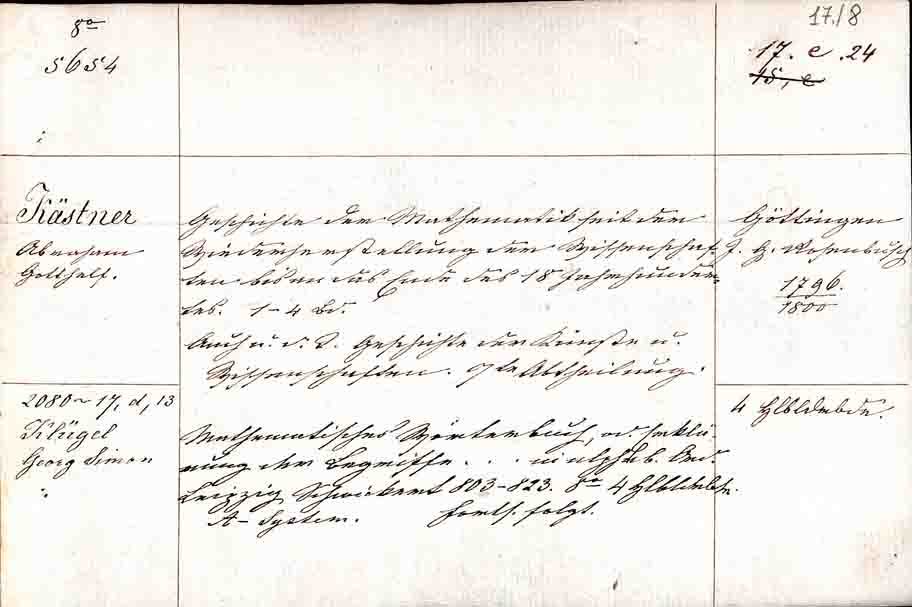 8º
5654
17./8
17. e. 24
15, e
Kästner
Abraham
Gotthelf.
Geschichte der Mathematik seit der
Wiederherstellung der Wissenschaf-
ten bis an das Ende des 18 Jahrhunder-
tes. 1-4 Bd.
Auch u. d. T. Geschichte der Künste u.
Wissenschaften. 7te Abtheilung.
Göttingen
J. G. Rosenbusch
1796.
1800
4 Hlbldrbde.
2080~17, d, 13
Klügel
Georg Simon
Mathematisches Wörterbuch, od. Erklä-
rung der Begriffe... in alphab. Ord.
Leipzig Schwickert 803-823. 8º 4 Hlbldrbde.
A-System. Forts. folgt.